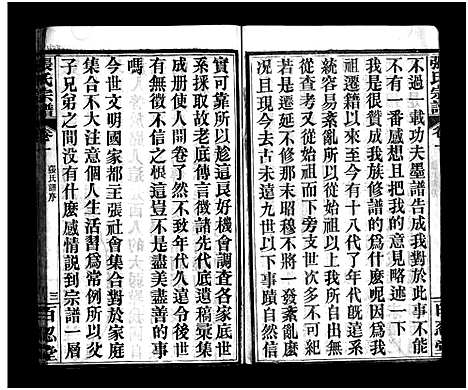 張氏宗譜
卷一
不過一載功夫墨譜告成我對於此事不能
不有一番感想且把我的意見略述一下
我是很贊成我族修譜的為什麽呢因為我
祖遷籍以來至今有十八代了年代旣遠系
統容易紊亂所以從始祖以上我們無所稽
從查考又從始祖而下旁支世次多不可失
若是遷延不修那末昭穆不將一發紊亂了
況且世系至今去古未遠九世以下班班
實可靠所以趁這良好機會調查各家底世
系採取故老底傳言徵諸先代底遺稿彙集
成册使人開卷了然不致年代久遠令後世
有無徵不信之恨這豈不是盡美盡善的事
嗎
今世文明國家都主張社會集合對於家庭
集合不大注意個人生活習爲常例所以父
子兄弟之間沒有什麽感情說到宗譜一層
張氏宗譜
卷一
張氏譜序
三
百忍堂
百忍堂